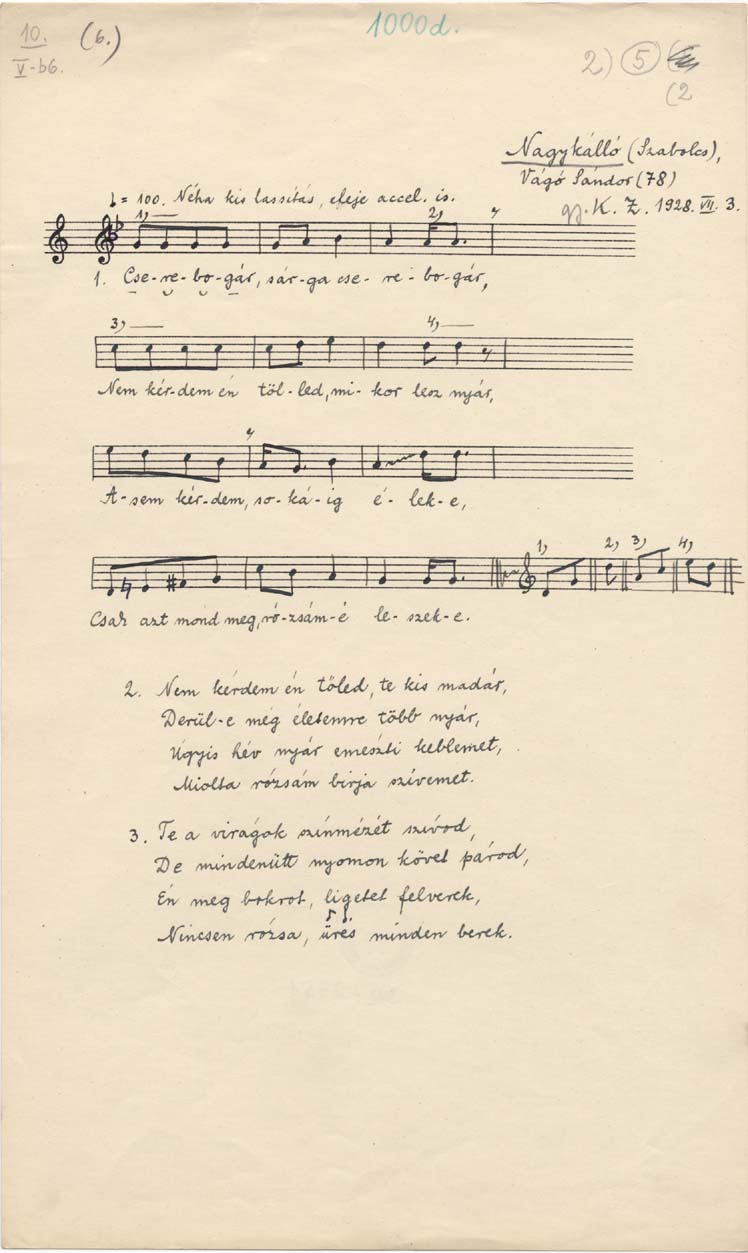 10.
V-b6.
(6.)
1000d.
2) 5
(2
Nagykálló (Szabolcs),
Vágó Sándor (78)
gy. K. Z. 1928. VII. 3.
♩ = 100. Néha kis lassítás, eleje accel. is.
1) 2)
1. Cse-re-bo-gár, sár-ga cse-re-bo-gár,
3) 4)
Nem kér-dem én töl-led, mi-kor lesz nyár,
A-sem kér-dem, so-ká-ig é-lek-e,
1) 2) 3) 4)
Csak azt mond meg, ró-zsám-é le-szek-e.
2. Nem kérdem én tőled, te kis madár,
Derül-e még életemre több nyár,
Ugyis hév nyár emészti keblemet,
Miolta rózsám birja szívemet.
3. Te a virágok színmézét szívod,
De mindenütt nyomon követ párod,
Én meg bokrot, ligetet felverek,
Nincsen rózsa, üres minden berek.